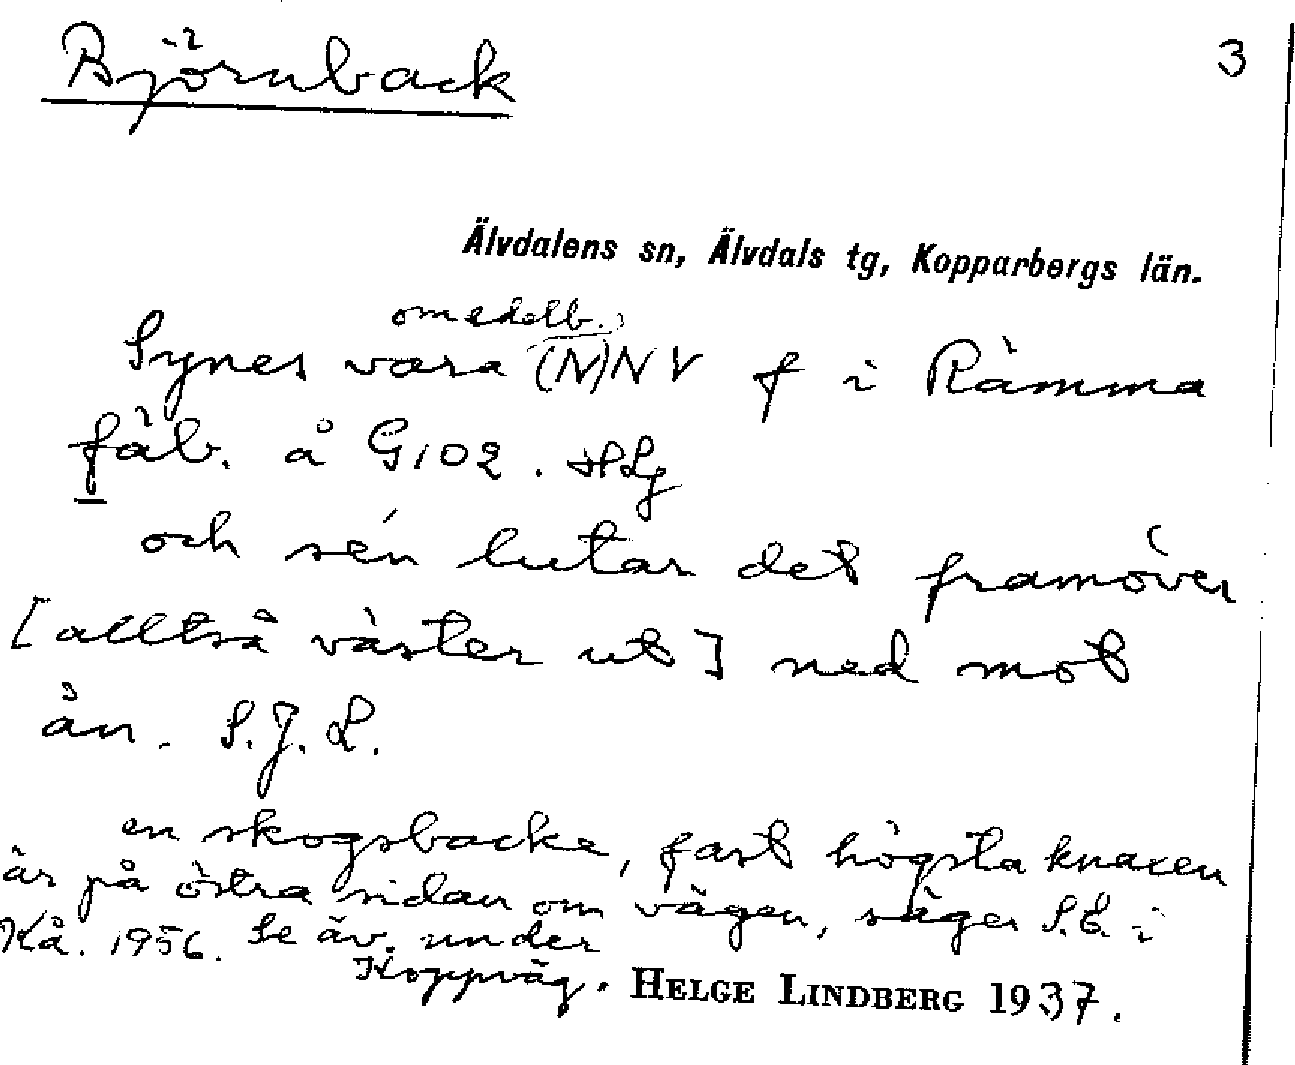 Björnback
3
Älvdalens sn, Älvdals tg, Kopparbergs län.
omedelb.
Synes vara (N)NV f i Rämma
fäb. å G102. HLg
och sén lutar det framöver
[alltså väster ut] ned mot
ån. S.J.L.
en skogsbacke, fast högsta knaxen
är på östra sidan om vägen, säger S.E. i
Kå. 1956. Se äv. under
Koppväg. HELGE LINDBERG 1937.